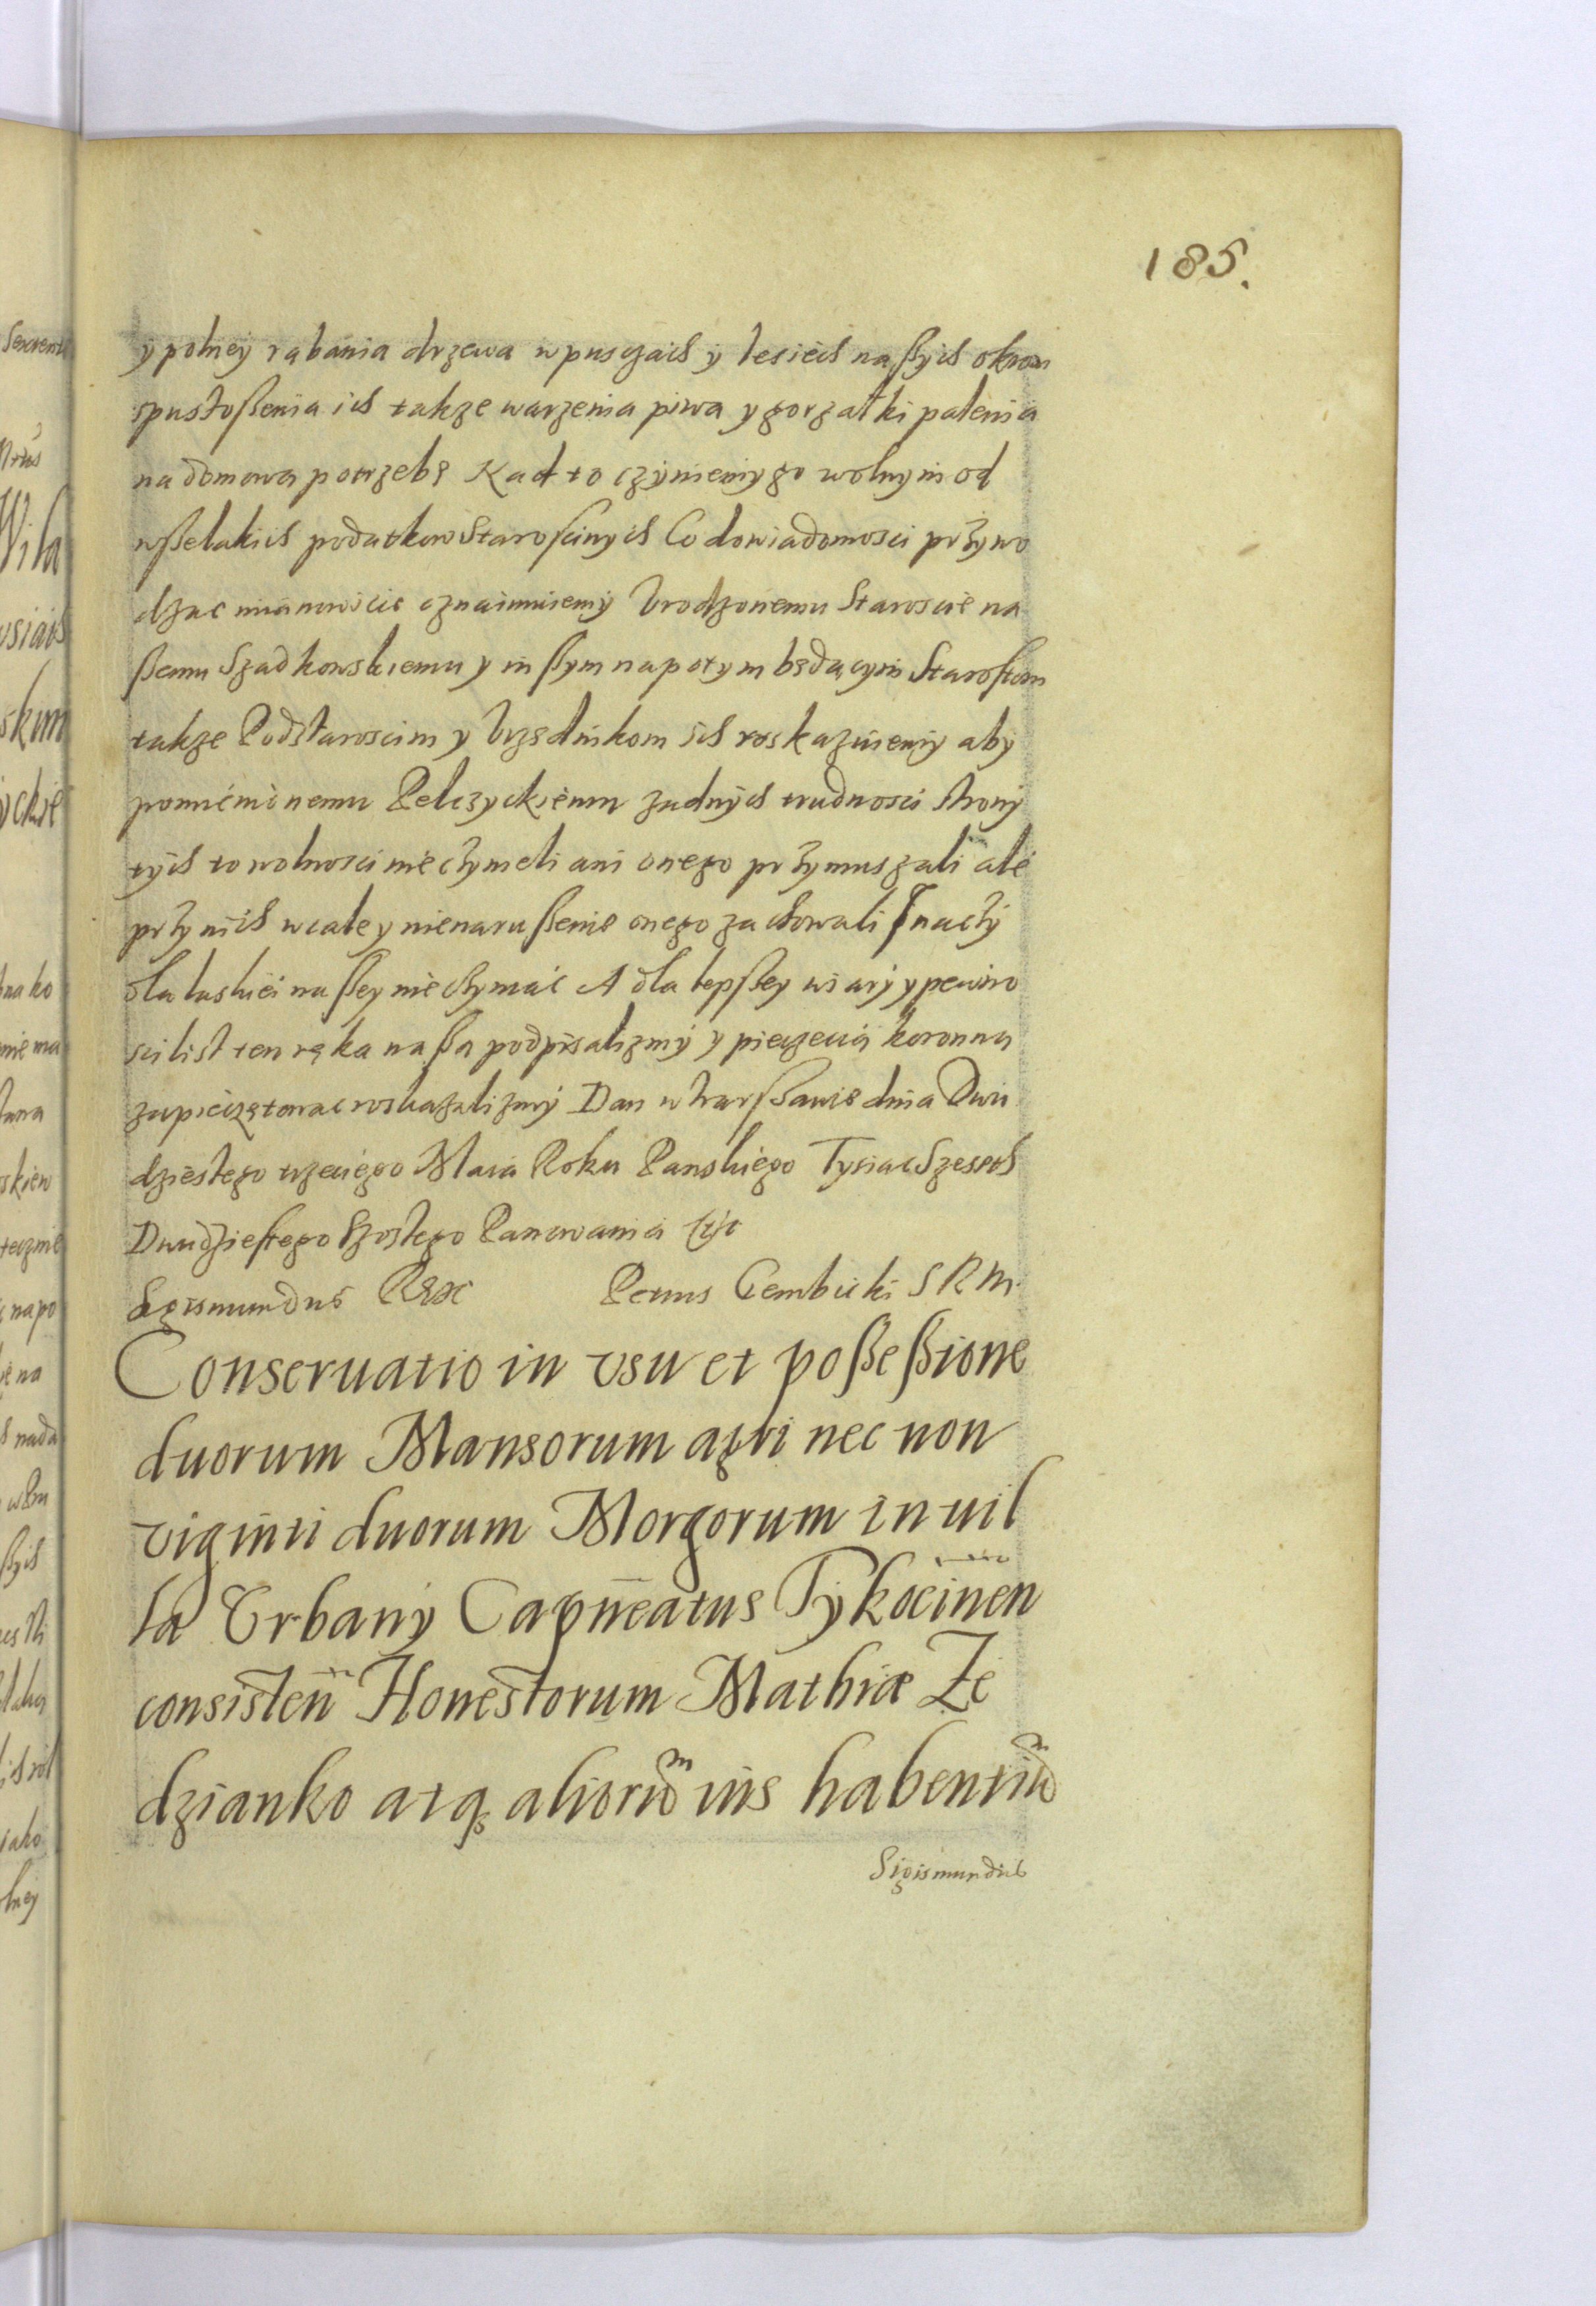 185.
y polney rąbania drzewa w pusczach y lesiech naßych okrom
spustoßenia ich takze warzenia piwa y gorzałki palenia
na domową potrzebę Nad to czyniemy go wolnym od
wßelakich podatkow Starosćinych Co do wiadomosci przywo
dząc mianowicie oznaimuiemy Vrodzonemu Staroscie na
ßemu Szadkowskiemu y inßym napotym będącym Starostom
takze Podstaroscim y Vrzędnikom ich roskazuiemy aby
pomienionemu Pelczyckiemu zadnych trudnosci strony
tych to wolnosci nie czynieli ani onego przymuszali ale
przy nich wcale y nienarußenie onego zachowali Inaczy
dla łaski naßey nie czyniąc A dla lepßey wiary y pewno
sci list ten ręką naßą podpisalizmy y pieczęcią koronną
zapieczętowac roskazalizmy Dan w Warßawie dnia Dwu
dziestego trzeciego Maia Roku Panskiego Tysiąc Szescseth
Dwudziestego Szostego Panowania etc
Sigismundus Rex Petrus Gembicki S R M
Conseruatio in vsu et poßeßione
duorum Mansorum agri nec non
viginti duorum Morgorum in vil
la Vrbany Capitneatus Tykocinen
consisten Honestorum Mathiæ Ze
dzianko atq aliorũ ius habentiũ
Sigismundus